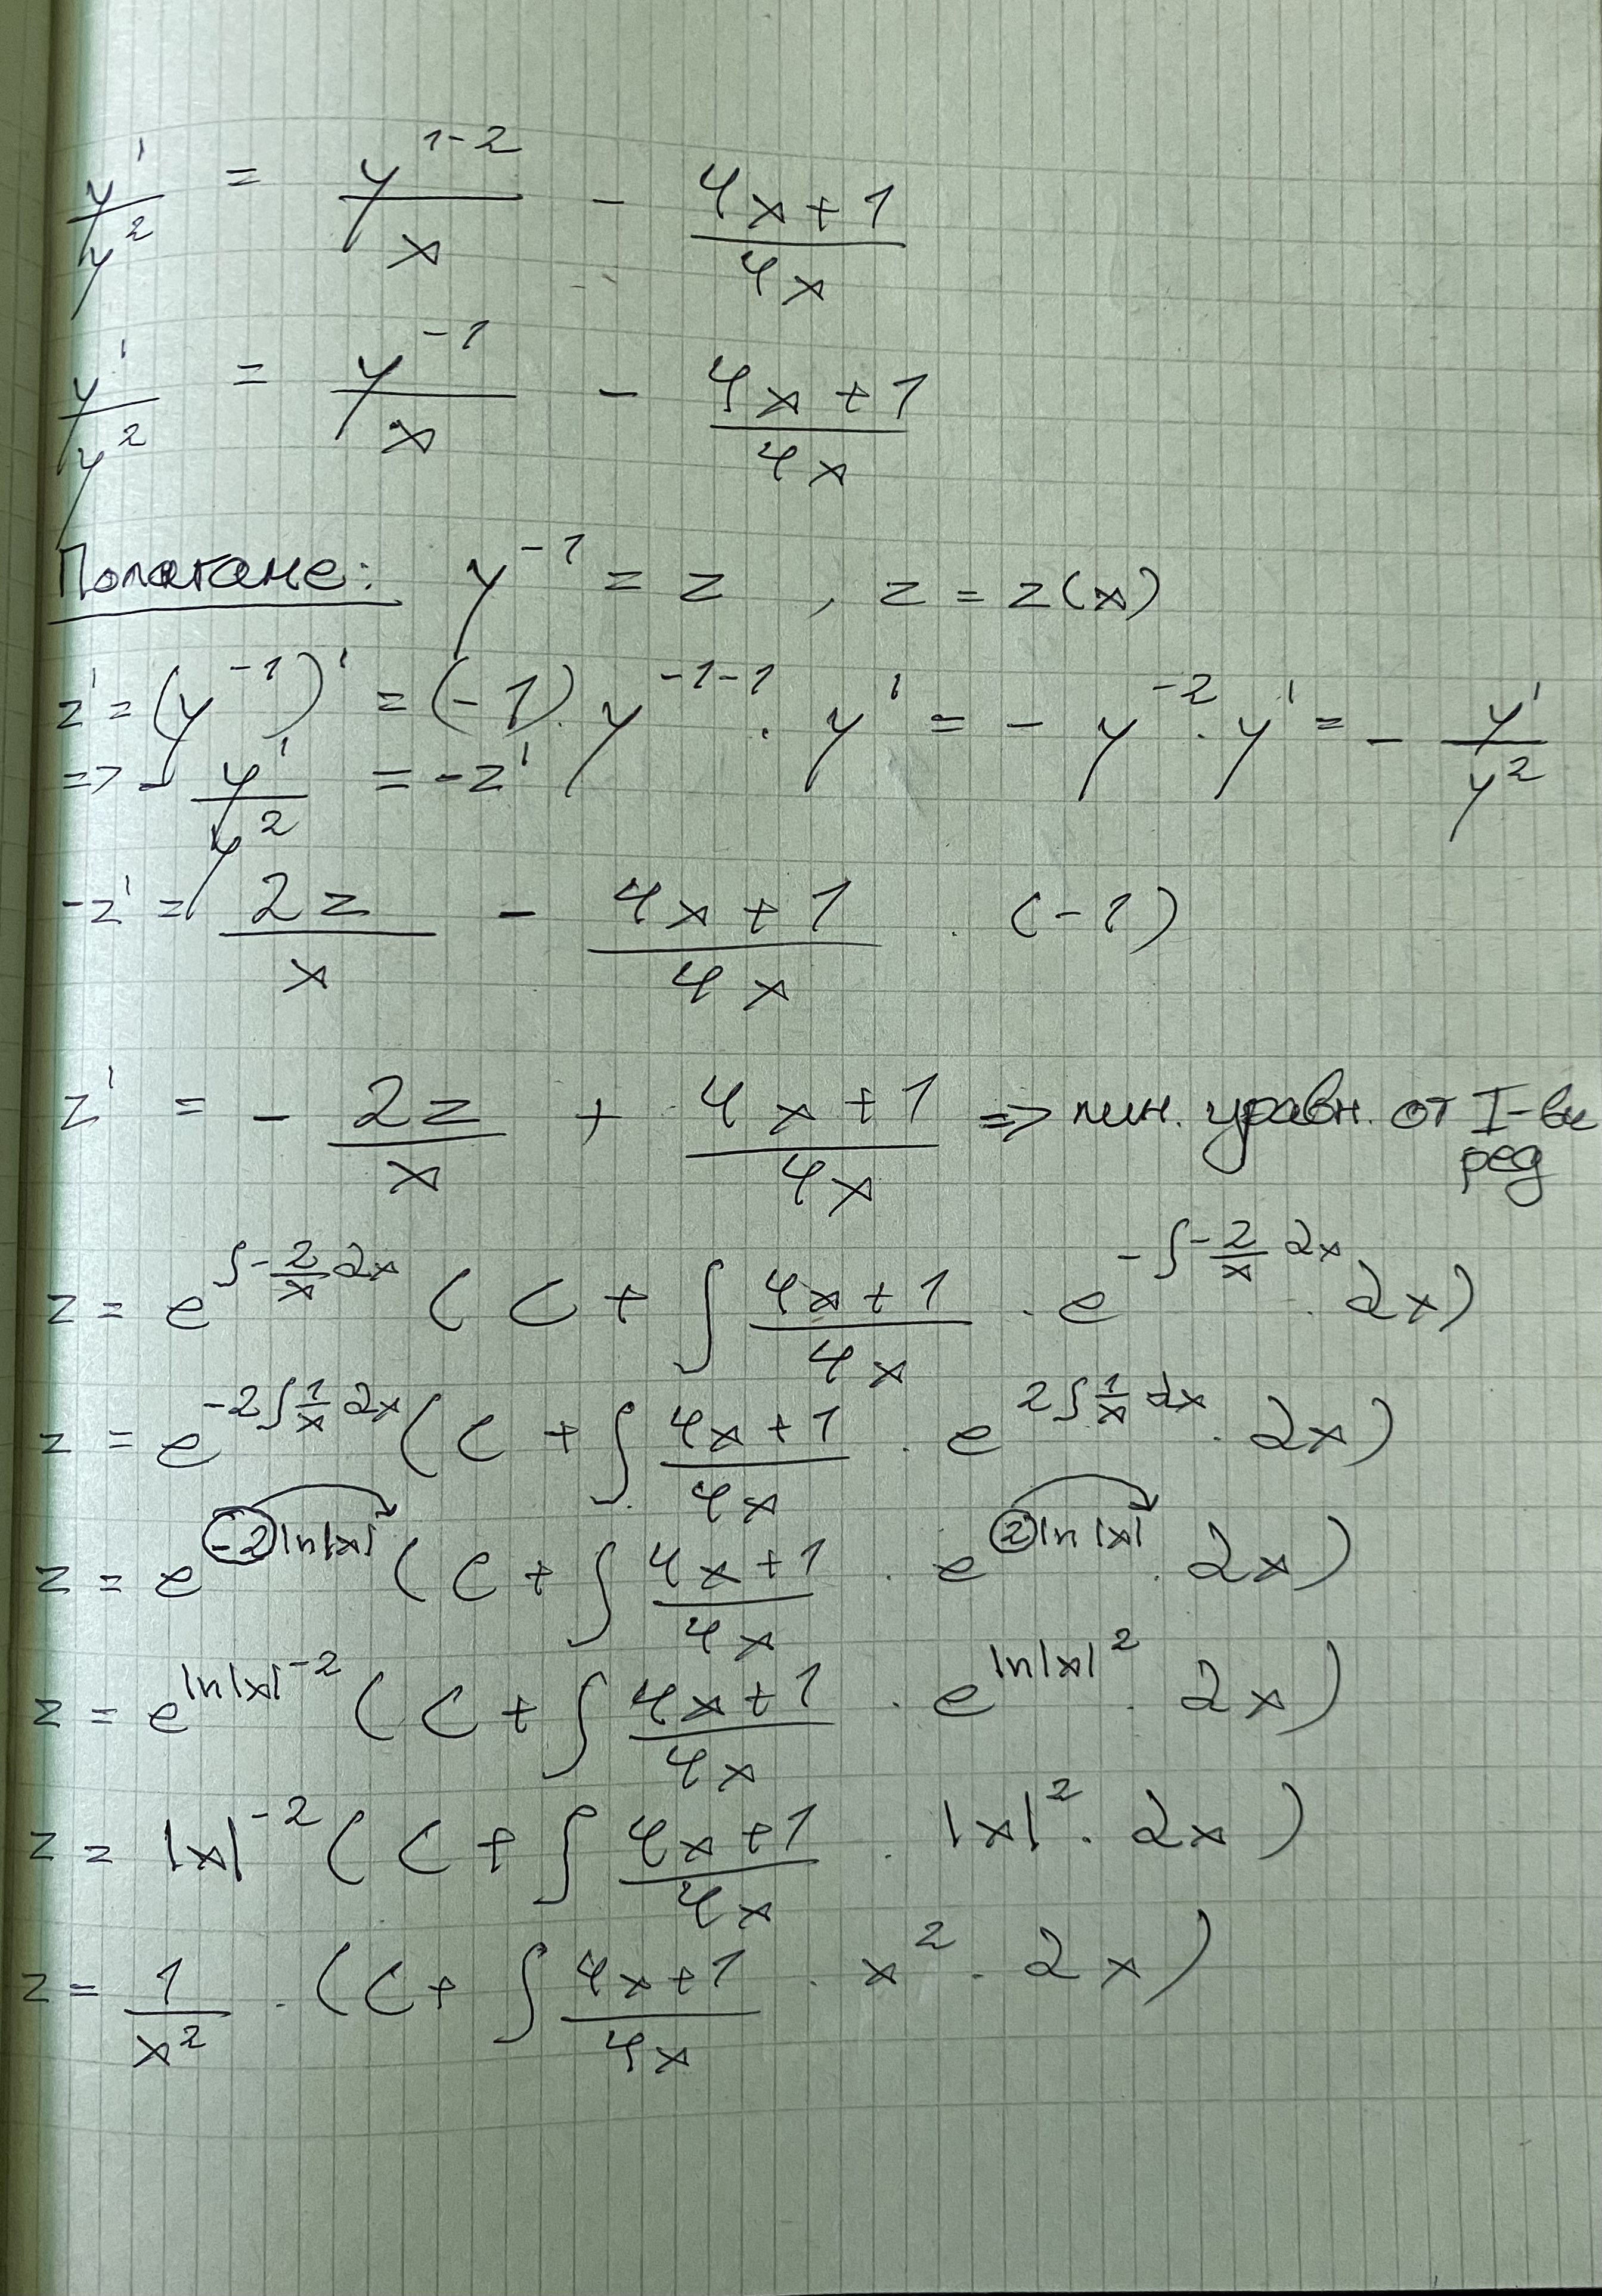 y'/y² = y¹⁻²/x - (4x+1)/4x
y'/y² = y⁻¹/x - (4x+1)/4x
Полагаме: y⁻¹ = z , z = z(x)
z' = (y⁻¹)' = (-1).y⁻¹⁻¹ . y' = - y⁻² . y' = - y'/y²
=> - y'/y² = -z'
-z' = 2z/x - (4x+1)/4x . (-1)
z' = - 2z/x + (4x+1)/4x => лин. уравн. от I-ви ред
z = e^(∫-2/x dx) (C + ∫ (4x+1)/4x . e^(-∫-2/x dx) . dx)
z = e^(-2∫1/x dx) (C + ∫ (4x+1)/4x . e^(2∫1/x dx) . dx)
z = e^(-2ln|x|) (C + ∫ (4x+1)/4x . e^(2ln|x|) . dx)
z = e^(ln|x|⁻²) (C + ∫ (4x+1)/4x . e^(ln|x|²) . dx)
z = |x|⁻² (C + ∫ (4x+1)/4x . |x|² . dx)
z = 1/x² . (C + ∫ (4x+1)/4x . x² . dx)